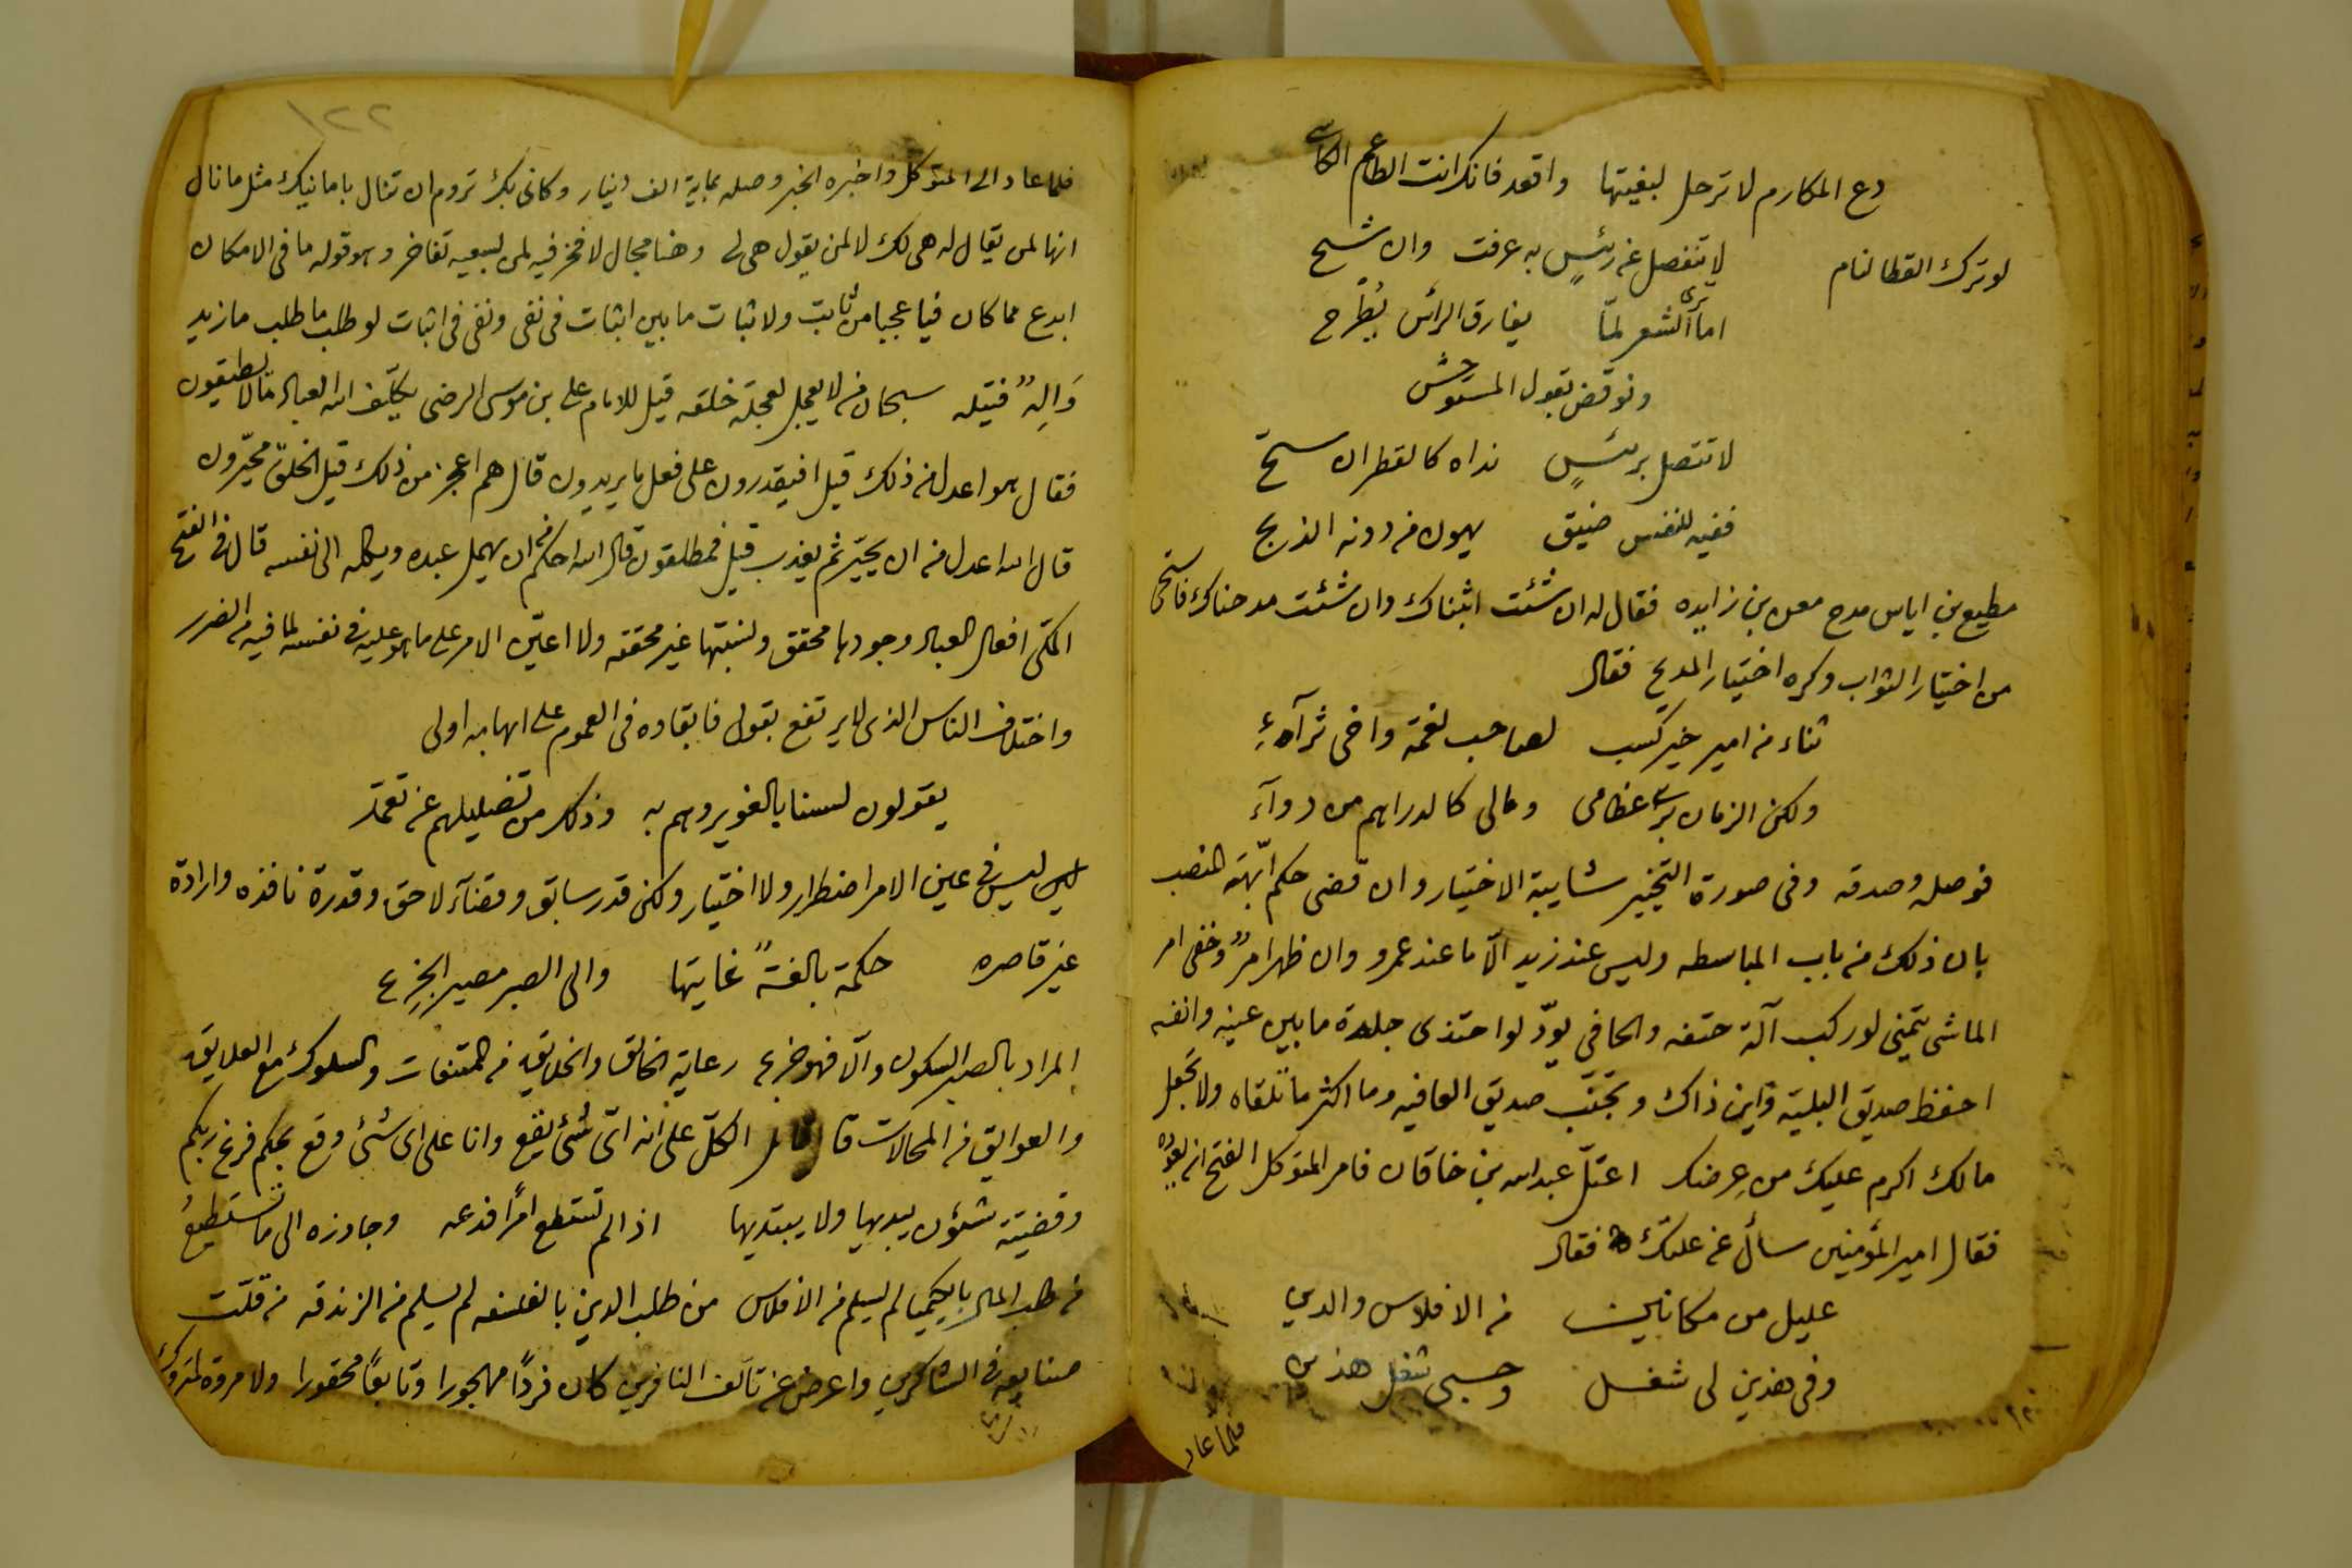 دع المكارم لا ترحل لبغيتها واقعد فانك انت الطاعم الكاسي
لو ترك القطا لنام لا تنفصل عن رئيسٍ به عرفت وان شح
اما ترى الشعر لمّا يفارق الرأس يُطرح
ونوقض بقول المستوحش
لا تتصل برئيسٍ نداه كالقطر ان سحّ
ففيه للنفس ضيق يهون من دونه الذبح
مطيع بن اياس مدح معن بن زايده فقال له ان شئت اثبناك وان شئت مدحناك فاستحى
من اختيار الثواب وكره اختيار المديح فقال
ثناء من امير خير كسب لصاحب نعمة واخى ثرآء
ولكن الزمان برى عظامى ومالى كالدراهم من دوآء
فوصله وصدقه وفى صورة التخيير شايبة الاختيار وان قضى حكم ابّهة المنصب
بان ذلك من باب المباسطه وليس عند زيد الّا ما عند عمرو وان ظهر امرٌ وخفى امر
الماشى يتمنى لو ركب آلة حتفه والحافي يودّ لو احتذى جلدة ما بين عينه وانفه
احفظ صديق البلية واين ذاك وتجنّب صديق العافيه وما اكثر ما تلقاه ولا تجعل
مالك اكرم عليك من عِرضك اعتلّ عبد الله بن خاقان فامر المتوكل الفتح ان يعوده
فقال امير المؤمنين سأل عن علتك فقال
عليل من مكانين من الافلاس والدين
وفى هذين لى شغل وحسبى شغل هذين
فلما عاد
١٢٢
فلما عاد الى المتوكل واخبره الخبر وصله بماية الف دنيار وكانى بك تروم ان تنال بامانيك مثل ما نال
انها لمن يقال له هى لك لا لمن يقول هى لى وهنا مجال لا فخر فيه لمن لسعيه تفاخر وهو قوله ما فى الامكان
ابدع مما كان فيا عجبا من ثابت ولا ثبات ما بين اثبات فى نفى ونفى فى اثبات لو طلب ما طلب ما زيد
وَالِهٌ فتيله سبحان من لا يعجل لعجلة خلقه قيل للامام على بن موسى الرضى يكلّف الله العباد ما لا يطيقون
فقال هو اعدل من ذلك قيل افيقدرون على فعل ما يريدون قال هم اعجز من ذلك قيل الخلق مجبّرون
قال الله اعدل من ان يجبر ثم يعذب قيل فمطلقون قال الله احكم من ان يهمل عبده ويكله الى نفسه قال فى الفتح
المكى افعال العباد وجودها محقق ونسبتها غير محققه ولا اعيّن الامر على ما هو عليه فى نفسه لما فيه من الضرر
واختلاف الناس الذى لا يرتفع بقول فابقاوه فى العموم على ابهامه اولى
يقولون لسنا بالغوير وهم به وذلك من تضليلهم عن تعمّد
ليس فى عين الامر اضطرار ولا اختيار ولكن قدر سابق وقضآء لاحق وقدرة نافذه وارادة
غير قاصره حكمة بالغةً غايتها والى الصبر مصير الجزع
المراد بالصبر السكون والّا فهو جزع رعاية الخالق والخلايق من المتنفات والسلوك مع العلايق
والعوايق من المحالات قال الكلّ على انه اىّ شئ يقع وانا على اى شئ وقع بحكم فرغ ربكم
وقضيته شئون يبديها ولا يبتديها اذا لم تستطع امرًا فدعه وجاوزه الى ما تستطيعُ
من طلب المال بالكيميا لم يسلم من الافلاس من طلب الدين بالفلسفه لم يسلم من الزندقه من قلّت
صنايعه فى الشاكرين واعرض عن تآلف النافرين كان فردًا مهجورا وتابعًا محقورا ولا مروة لمتروك